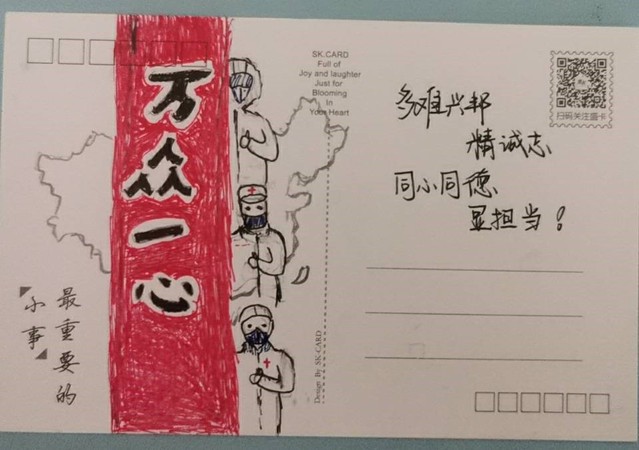 万众一心
SK.CARD
Full of
Joy and laughter
Just for
Blooming
In
Your Heart
多难兴邦
精诚志
同小同德
显担当！
扫码关注盛卡
最重要的
小事
Design By SK-CARD